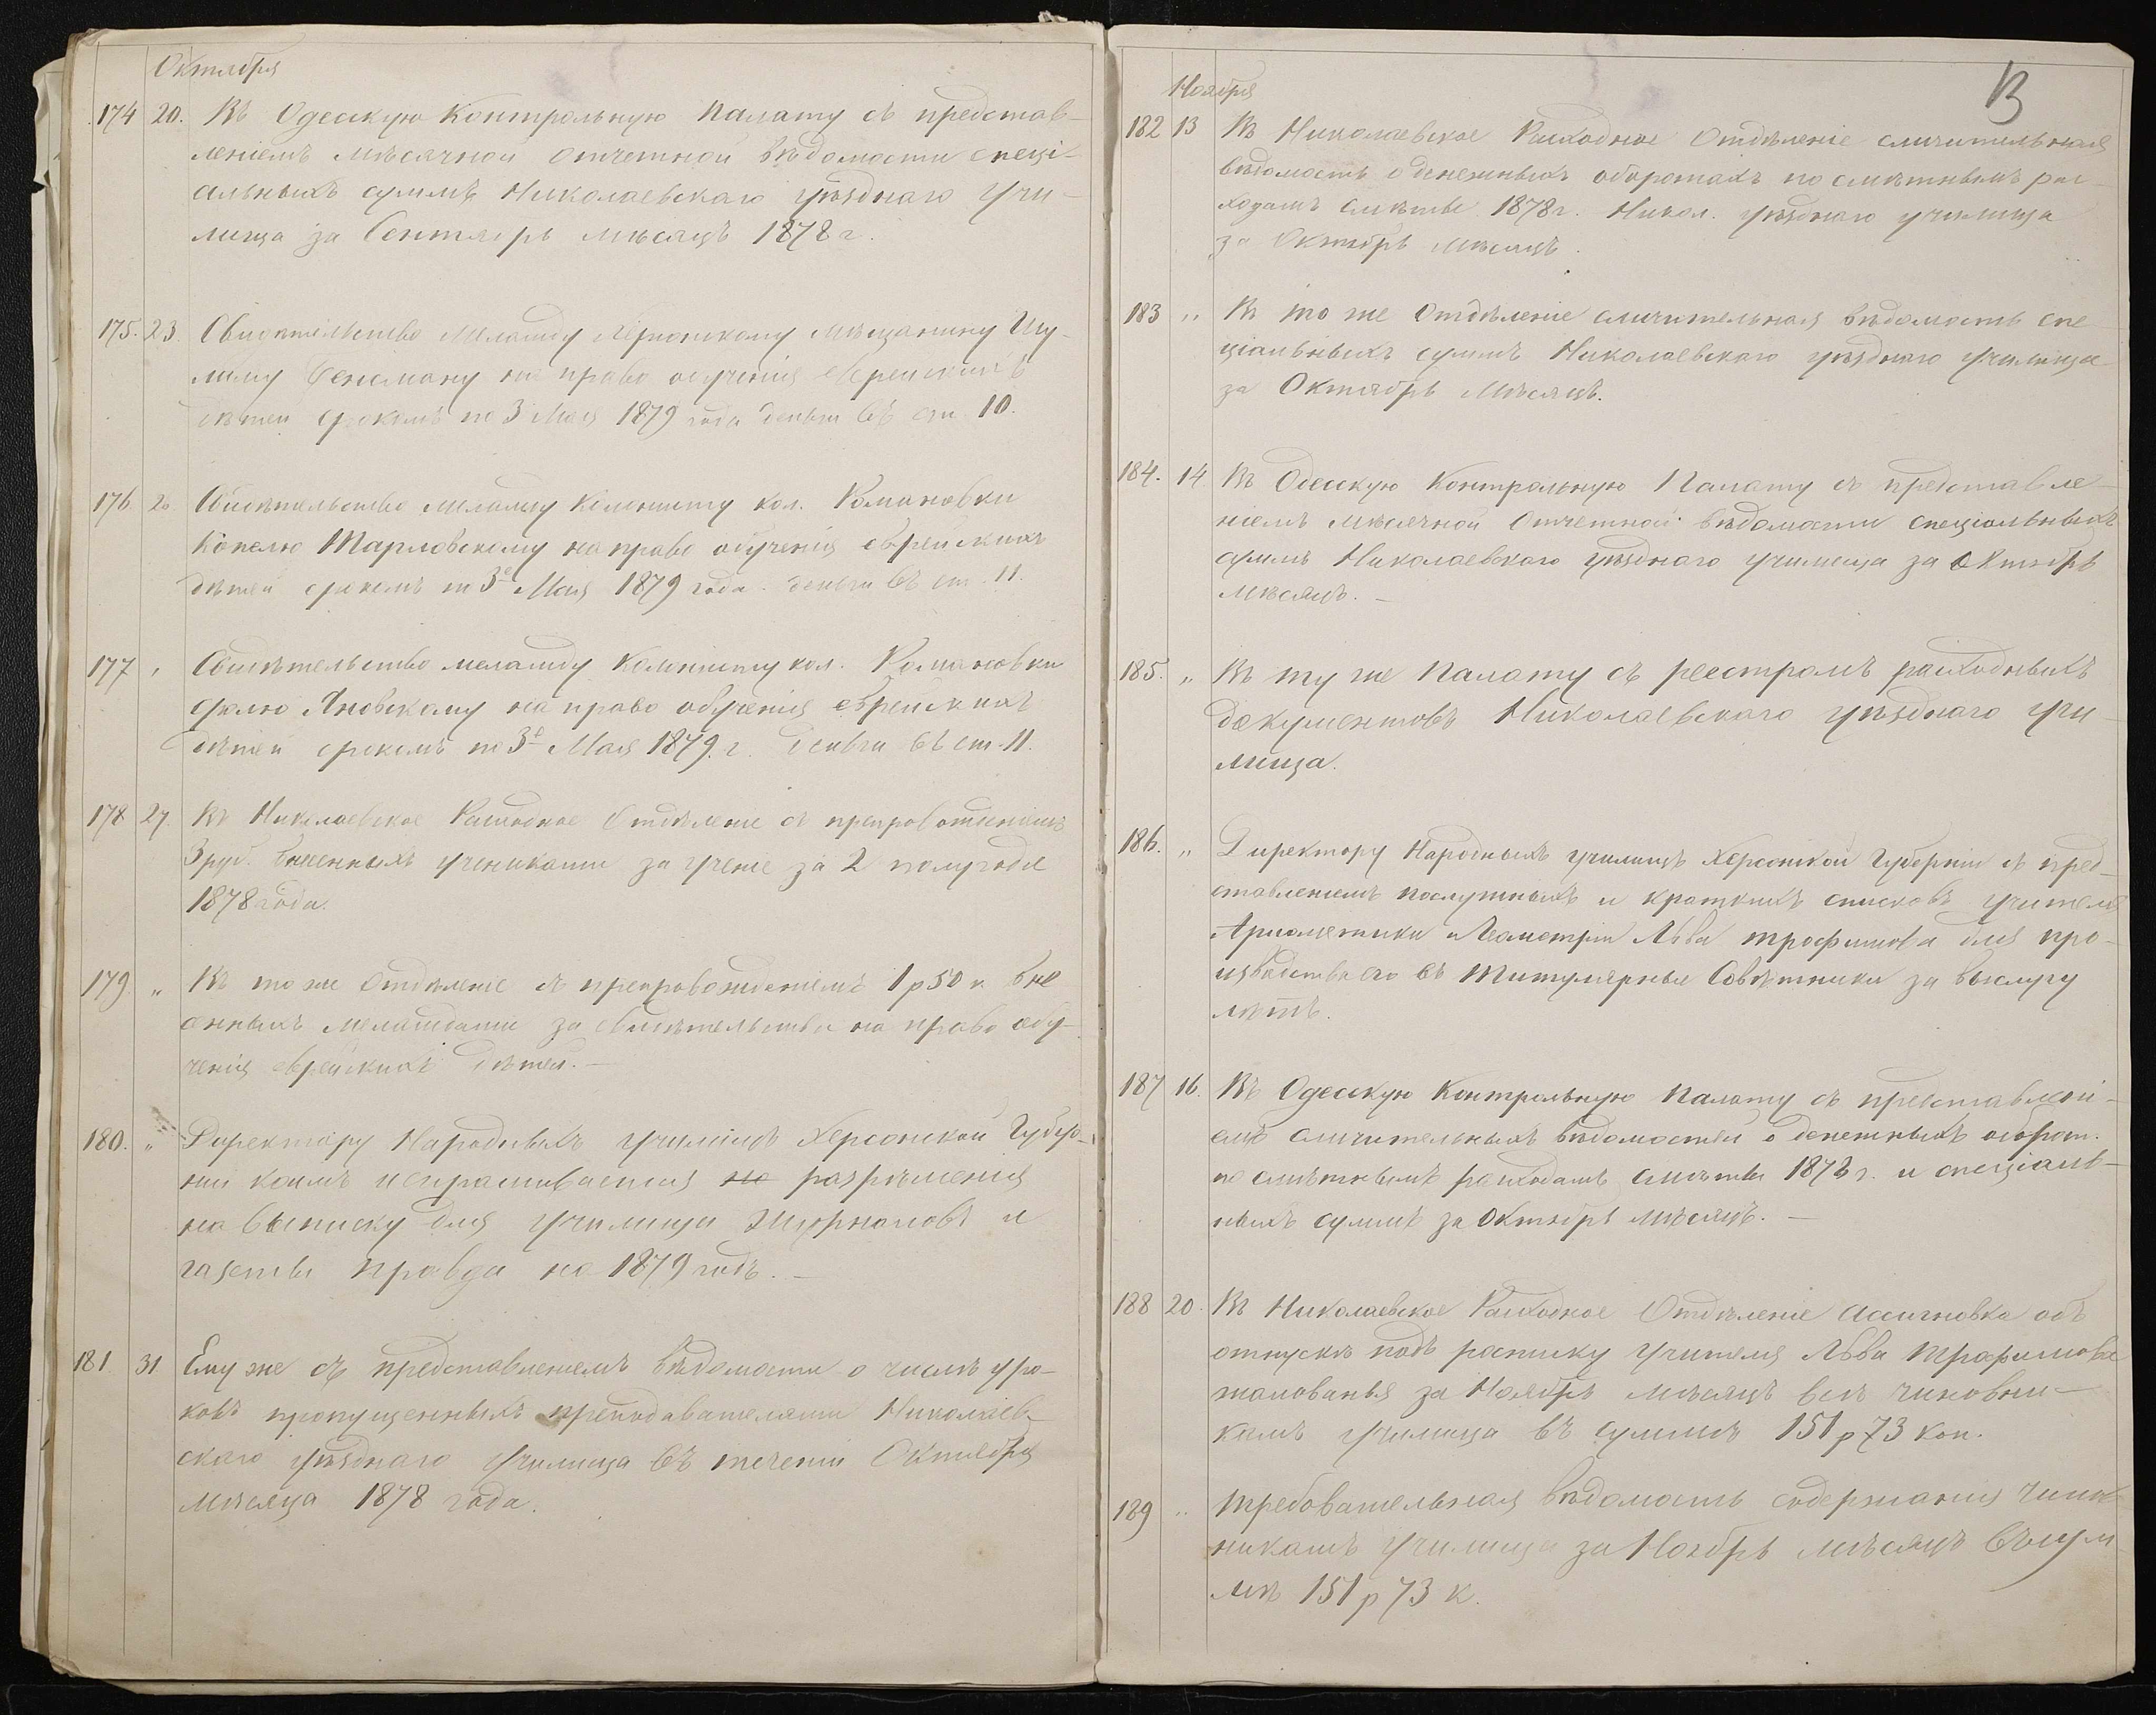 Октября
174 20. Въ Одесскую Контрольную Палату съ представ-
леніемъ мѣсячной отчетной вѣдомости спеці-
альныхъ суммъ Николаевскаго уѣзднаго учи-
лища за Сентябрь мѣсяцъ 1878 г.
175. 23. Свидѣтельство меламду Херсонскому мѣщанину Шу-
на право обученія еврейскихъ
дѣтей срокомъ по 3 Мая 1879 года деньги въ ст. 10.
176 Свидѣтельство меламду колонисту кол. Романовки
Копелю Тарловскому на право обученія еврейскихъ
дѣтей срокомъ по 3е Мая 1879 года. деньги въ ст. 11.
177 " Свидѣтельство меламду колонисту кол. Романовки
Яновскому на право обученія еврейскихъ
дѣтей срокомъ по 3е Мая 1879 г. деньги въ ст. 11.
178 27. Въ Николаевское Расходное Отдѣленіе съ препровожденіемъ
3 руб. внесенныхъ учениками за ученіе за 2 полугодіе
1878 года.
179 " Въ то же Отдѣленіе съ препровожденіемъ 1 р 50 к вне
сенныхъ меламдами за свидѣтельства на право обу-
ченія еврейскихъ дѣтей. —
180. " Директору Народныхъ училищъ Херсонской Губер-
ніи коимъ испрашивается на разрѣшенія
на выписку для училища журналовъ и
газеты Правда на 1879 годъ. —
181. 31 Ему же съ представленіемъ вѣдомости о числѣ уро-
ковъ пропущенныхъ преподавателями Николаев-
скаго уѣзднаго училища въ теченіи Октября
мѣсяца 1878 года.
13
Ноября
182 13 Въ Николаевское Расходное Отдѣленіе сличительная
вѣдомость о денежныхъ оборотахъ по смѣтнымъ рас-
ходамъ смѣты 1878 г. Никол. уѣзднаго училища
за Октябрь мѣсяцъ.
183 " Въ то же Отдѣленіе сличительная вѣдомость спе
ціальныхъ суммъ Николаевскаго уѣзднаго училища
за Октябрь мѣсяцъ.
184. 14 Въ Одесскую Контрольную Палату съ представле-
ніемъ мѣсячной отчетной вѣдомости спеціальныхъ
суммъ Николаевскаго уѣзднаго училища за Октябрь
мѣсяцъ. —
185. " Въ ту же Палату съ реестромъ расходныхъ
документовъ Николаевскаго уѣзднаго учи-
лища.
186. " Директору Народныхъ училищъ Херсонской Губерніи съ пред-
ставленіемъ послужныхъ и краткихъ списковъ учителя
Ариѳметики и Геометріи Льва Трофимова для про-
изводства его въ Титулярные Совѣтники за выслугу
лѣтъ.
187 16. Въ Одесскую Контрольную Палату съ представлені-
емъ сличительныхъ вѣдомостей о денежныхъ оборот.
по смѣтнымъ расходамъ смѣты 1878 г. и спеціаль-
ныхъ суммъ за Октябрь мѣсяцъ. —
188 20. Въ Николаевское Расходное Отдѣленіе Ассигновка объ
отпускѣ подъ росписку учителя Льва Трофимова
жалованья за Ноябрь мѣсяцъ всѣмъ чиновни-
камъ училища въ суммѣ 151 р 73 коп.
189 " Требовательная вѣдомость содержанія чинов
никамъ училища за Ноябрь мѣсяцъ въ сум
мѣ 151 р 73 к.